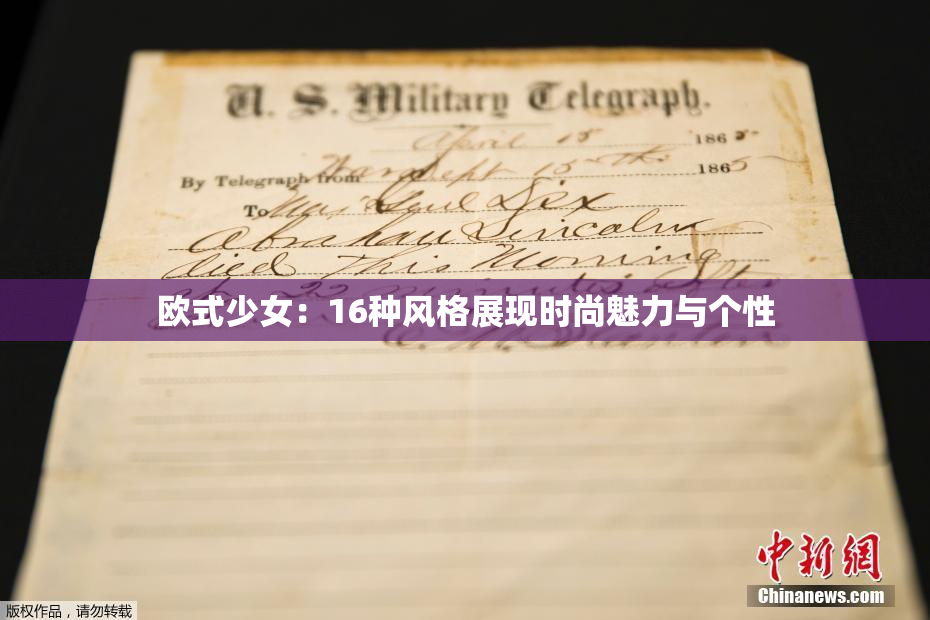 U. S. Military Telegraph.
April 15 1865
By Telegraph from War Dept 15th 1865
To Maj Genl Dix
Abraham Lincoln
died This Morning
at 22 minutes after
欧式少女：16种风格展现时尚魅力与个性
E. M. Stanton
中新网
Chinanews.com
版权作品，请勿转载